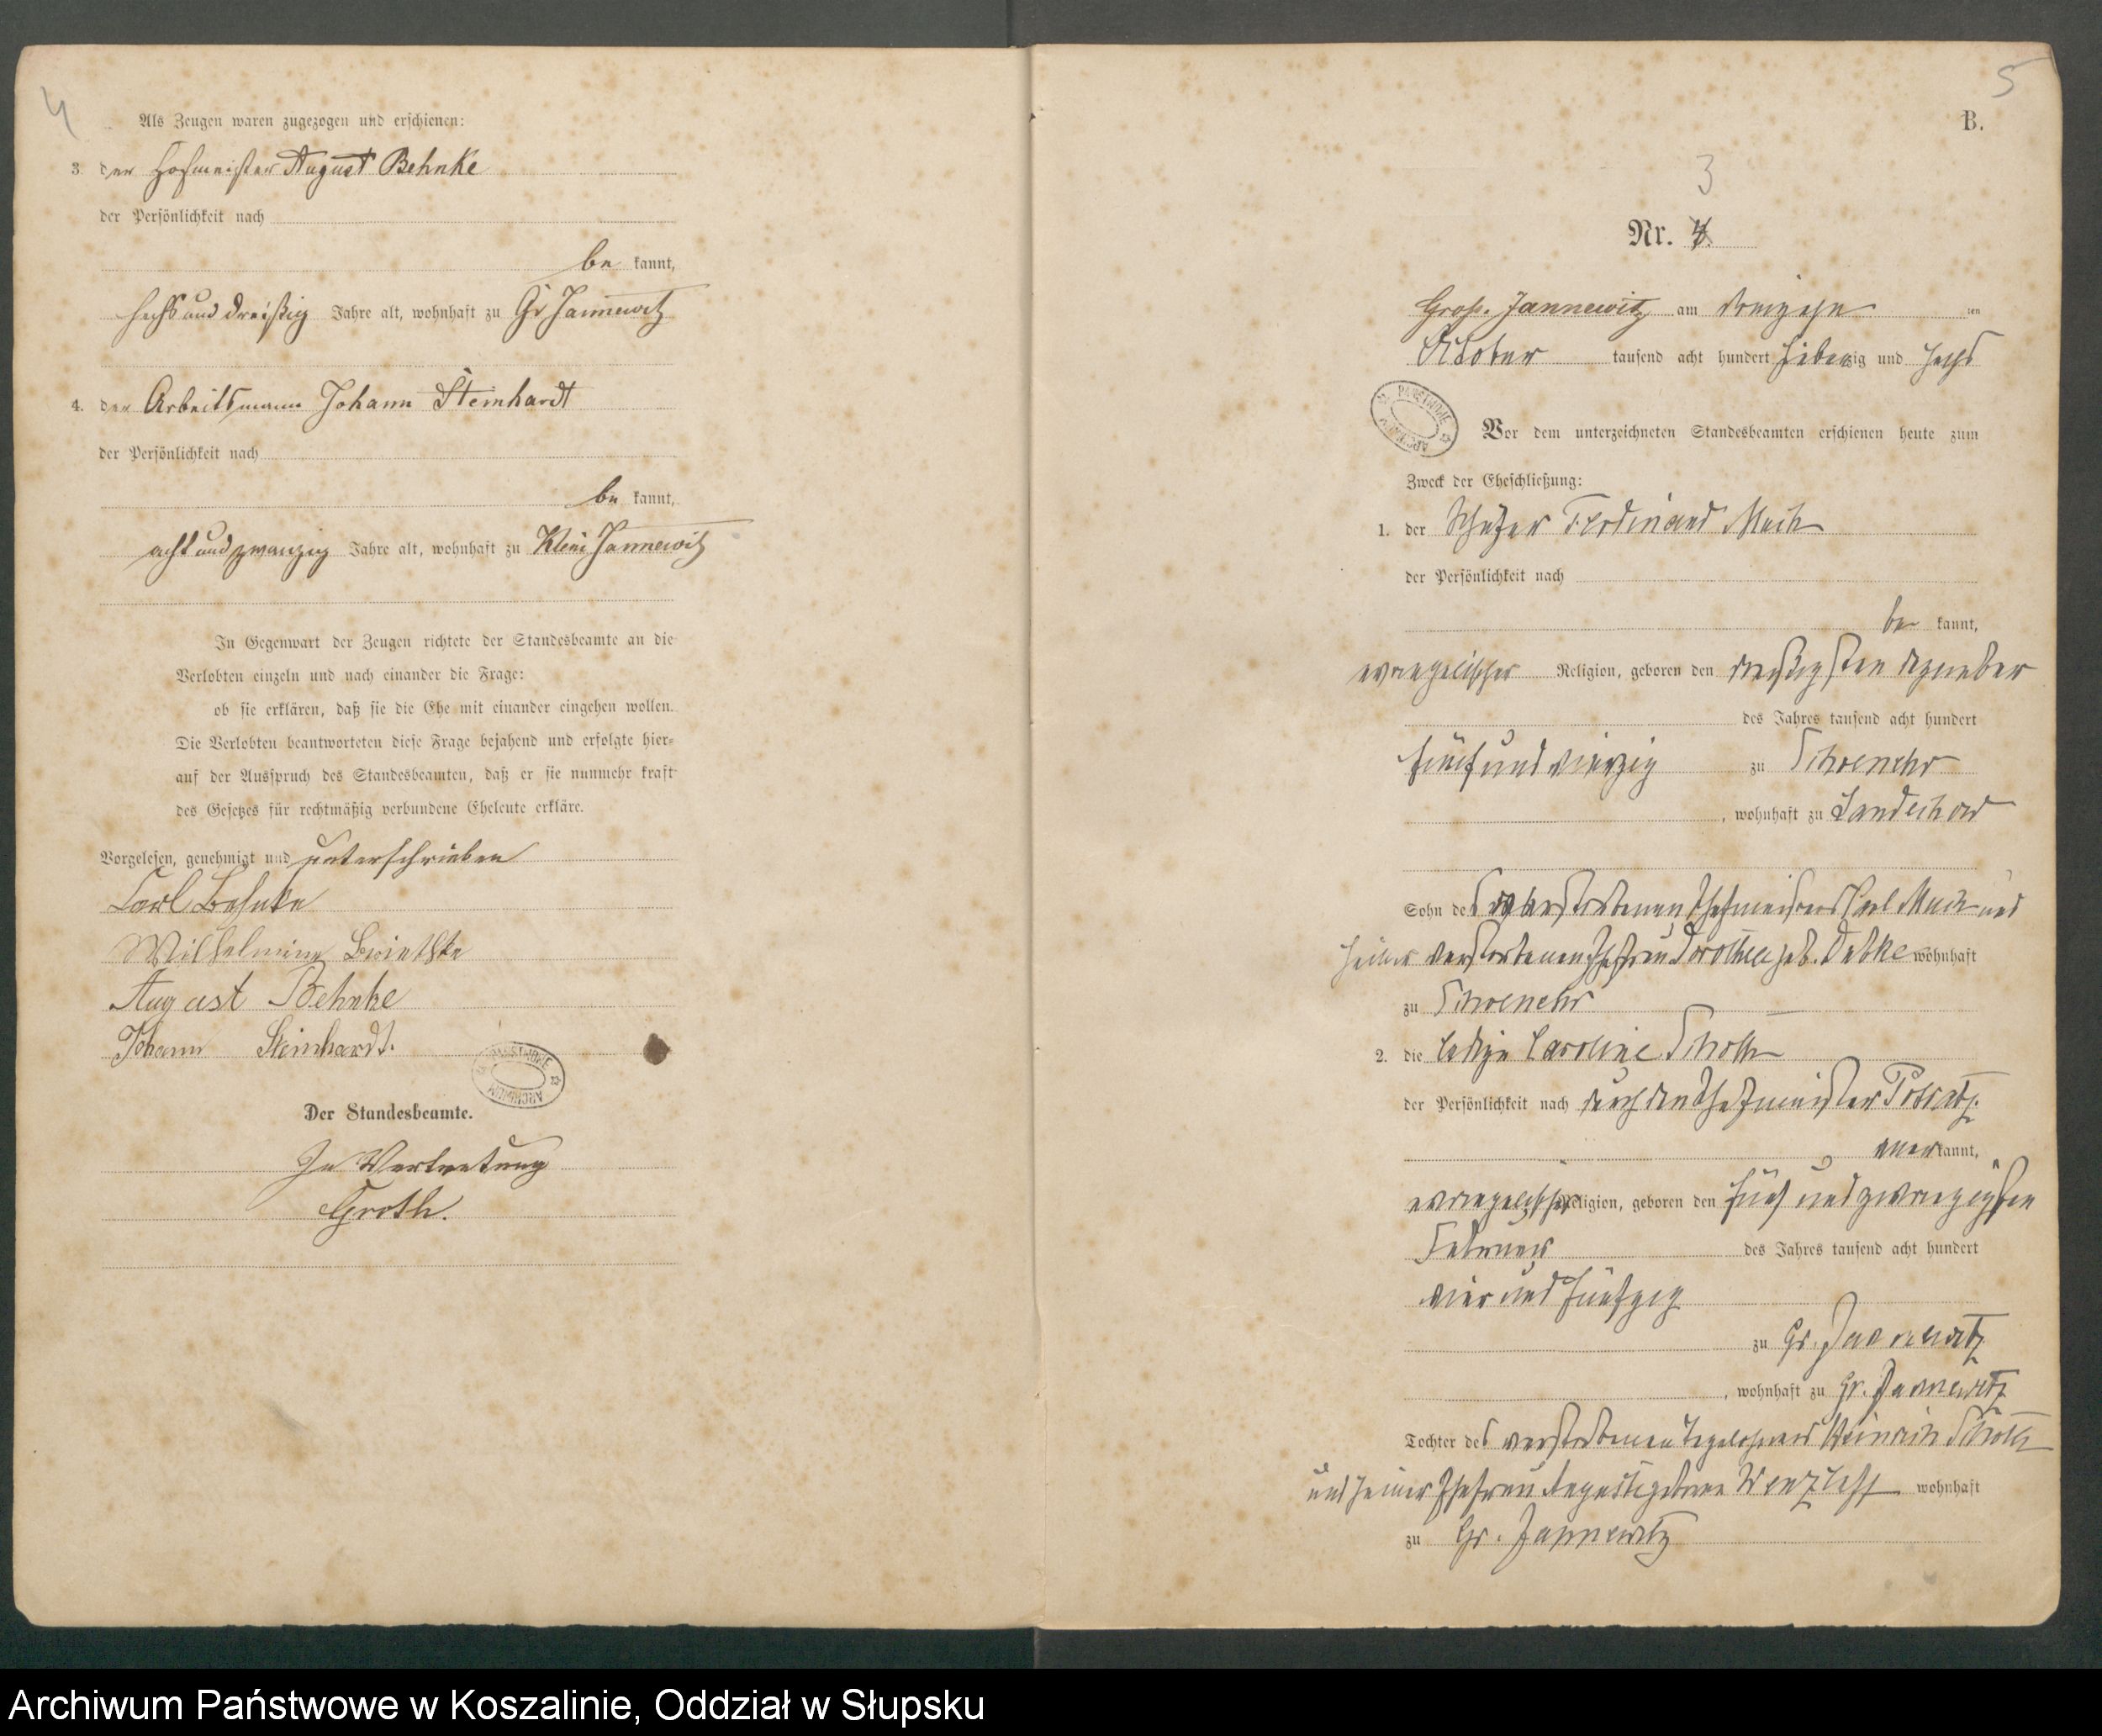 4
Als Zeugen waren zugezogen und erschienen:
3. der Hofmeister August Behnke
der Persönlichkeit nach
be kannt,
sechs und dreißig Jahre alt, wohnhaft zu Gr Jannewitz
4. der Arbeitsmann Johann Steinhardt
der Persönlichkeit nach
be kannt,
acht und zwanzig Jahre alt, wohnhaft zu Klein Jannewitz
In Gegenwart der Zeugen richtete der Standesbeamte an die
Verlobten einzeln und nach einander die Frage:
ob sie erklären, daß sie die Ehe mit einander eingehen wollen.
Die Verlobten beantworteten diese Frage bejahend und erfolgte hier-
auf der Ausspruch des Standesbeamten, daß er sie nunmehr kraft
des Gesetzes für rechtmäßig verbundene Eheleute erkläre.
Vorgelesen, genehmigt und unterschrieben
Carl Behnke
Wilhelmine
August Behnke
Johann Steinhardt.
ARCHIWUM PAŃSTWOWE
Der Standesbeamte.
In Vertretung
Groth.
5
B.
3
Nr. 4.
Groß. Jannewitz am dreizehn ten
October tausend acht hundert siebenzig und sechs
ARCHIWUM PAŃSTWOWE
Vor dem unterzeichneten Standesbeamten erschienen heute zum
Zweck der Eheschließung:
1. der Schäfer Ferdinand Mach
der Persönlichkeit nach
be kannt,
evangelischer Religion, geboren den dreißigsten Dezember
des Jahres tausend acht hundert
fünf und vierzig zu Schwenehr
wohnhaft zu Landechow
Sohn des verstorbenen Carl Mach und
seiner verstorbenen Ehefrau Dorothea geb. wohnhaft
zu Schwenehr
2. die ledige Caroline
der Persönlichkeit nach durch den
aner kannt,
evangelischer Religion, geboren den fünf und zwanzigsten
Februar des Jahres tausend acht hundert
vier und fünfzig
zu Gr. Jannewitz
, wohnhaft zu Gr. Jannewitz
Tochter des verstorbenen Tagelöhners Heinrich
und seiner Ehefrau geborne wohnhaft
zu Gr. Jannewitz
Archiwum Państwowe w Koszalinie, Oddział w Słupsku